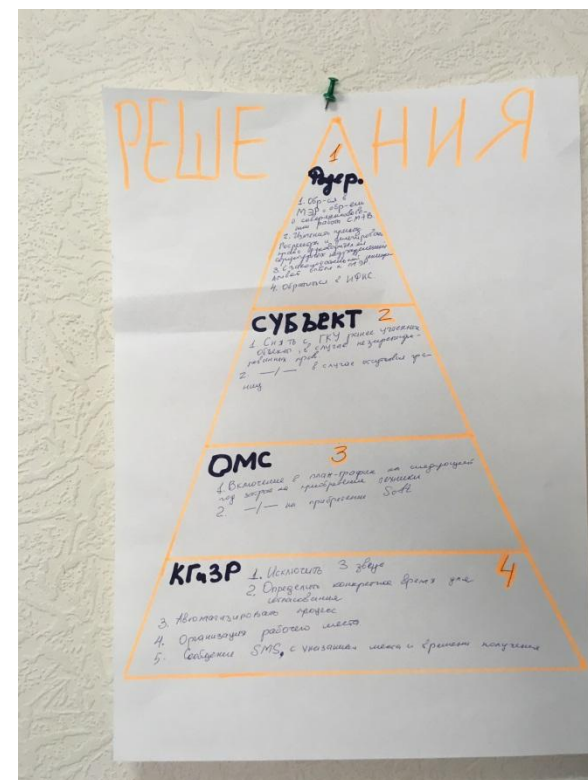 РЕШЕНИЯ
1
Федер.
1. Обр-ся в
МЭР с обр-ем
о
работы СМЭВ
2. Изменить приказ
Росреестра и
права
3. С
4. Обратиться в УФНС
СУБЪЕКТ 2
1. Снять с ГКУ ранее учтенные
объекты, в случае
прав
2. —/— в случае отсутствия
ниц
ОМС 3
1. Включение в план-график на следующий
год закупки на приобретение техники
2. —/— на приобретение Soft
КГиЗР 4
1. Исключить 3 звено
2. Определить конкретное время для
согласования
3. Автоматизировать процесс
4. Организация рабочего места
5. Сообщение SMS, с указанием места и времени получения